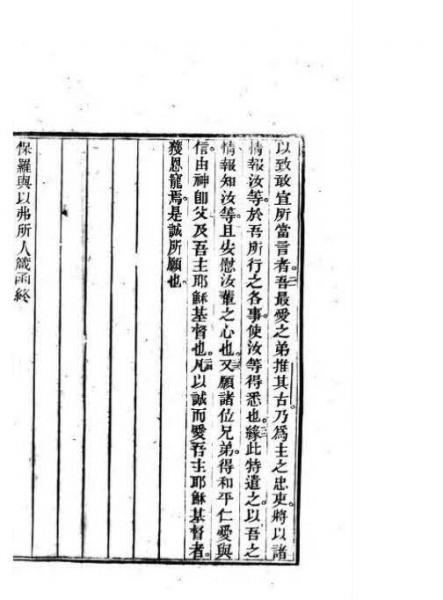 以致敢宣所當言者。吾最愛之弟推其古。乃為主之忠吏。將以諸
情報汝等。於吾所行之各事。使汝等得悉也。緣此特遣之以吾之
情報知汝等。且安慰汝輩之心也。又願諸位兄弟。得和平仁愛與
信由神即父及吾主耶穌基督也。凡以誠而愛吾主耶穌基督者。
獲恩寵焉。是誠所願也。
保羅與以弗所人緘函終